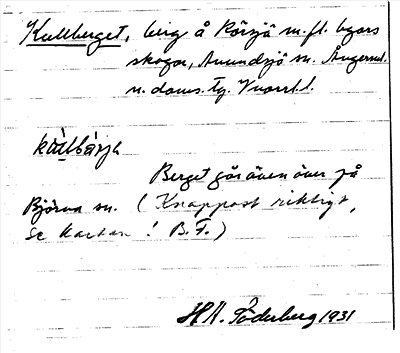 Kullberget, berg å Rörsjö m.fl. byars
skogar, Anundsjö sn. Ångerml.
n. doms. tg. Vnorrl. l.
Berget går även över på
Björna sn. (Knappast riktigt,
se kartan! B.F.)
H.N. Söderberg 1931